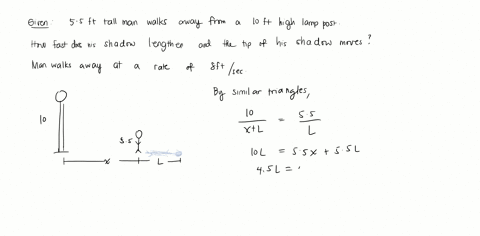 Given: 5.5 ft tall man walks away from a 10 ft high lamp post.
How fast does his shadow lengthen and the tip of his shadow moves?
Man walks away at a rate of 8ft/sec
By similar triangles,
10/(x+L) = 5.5/L
10L = 5.5x + 5.5L
4.5L =
10
5.5
x
L